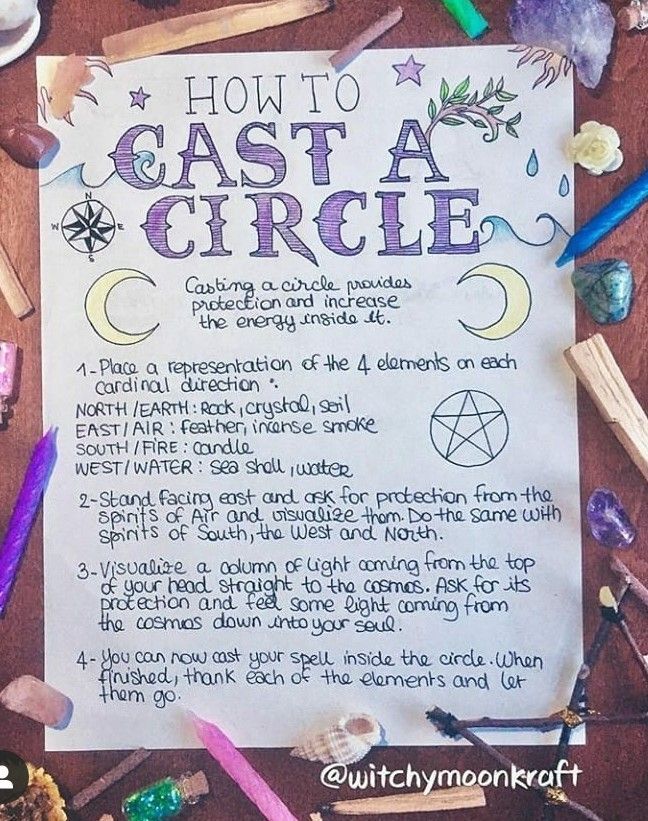 HOW TO
CAST A
CIRCLE
N
W E
S
Casting a circle provides
protection and increase
the energy inside it.
1-Place a representation of the 4 elements on each
cardinal direction :
NORTH/EARTH: Rock, crystal, soil
EAST/AIR : feather, incense smoke
SOUTH/FIRE : candle
WEST/WATER : sea shell, water
2-Stand facing east and ask for protection from the
spirits of Air and visualize them. Do the same with
spirits of South, the West and North.
3-Visualize a column of light coming from the top
of your head straight to the cosmos. Ask for its
protection and feel some light coming from
the cosmos down into your soul.
4-You can now cast your spell inside the circle. When
finished, thank each of the elements and let
them go.
@witchymoonkraft